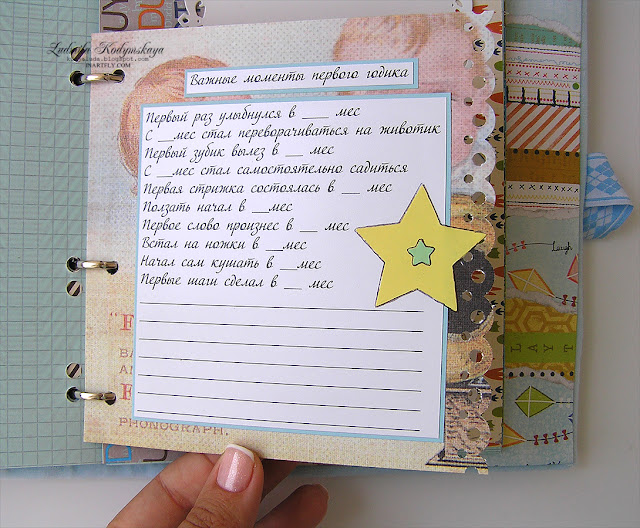 Ludmila Kodymskaya
INARTFLY.COM
Важные моменты первого годика
Первый раз улыбнулся в ___ мес
С __мес стал переворачиваться на животик
Первый зубик вылез в __ мес
С __мес стал самостоятельно садиться
Первая стрижка состоялась в __ мес
Ползать начал в __мес
Первое слово произнес в __ мес
Встал на ножки в __мес
Начал сам кушать в __мес
Первые шаги сделал в __ мес
PHONOGRAPH.
Laugh
LAYT